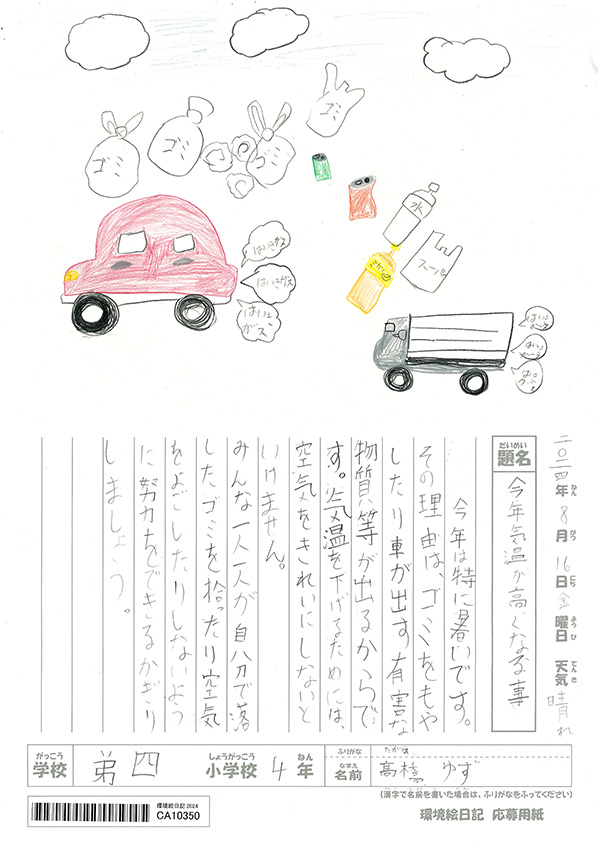 ゴミ
ゴミ
ゴミ
ゴミ
水
スーパー
はいきガス
はいきガス
はいきガス
二〇二四年8月16日金曜日 天気晴れ
ねん
がつ
にち
ようび
てんき
だいめい
題名
今年気温が高くなる事
今年は特に暑いです。
その理由は、ゴミをもや
したり車が出す有害な
物質等が出るからで
す。気温を下げるためには、
空気をきれいにしないと
いけません。
みんな一人一人が自分で落
したゴミを拾ったり空気
をよごしたりしないよう
に努力をできるかぎり
しましょう。
がっこう
学校
第四
しょうがっこう
小学校
4
ねん
年
ふりがな
なまえ
名前
髙橋 ゆず
(漢字で名前を書いた場合は、ふりがなをふってください)
環境絵日記 2024
CA10350
環境絵日記 応募用紙